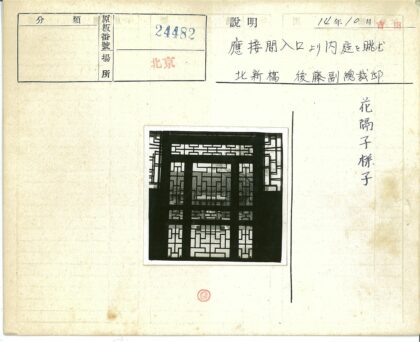 分類
原板番號 24482
場所 北京
説明
14年10月
應接間入口より内庭を眺む
北新橋 後藤副總裁邸
花隔子様子